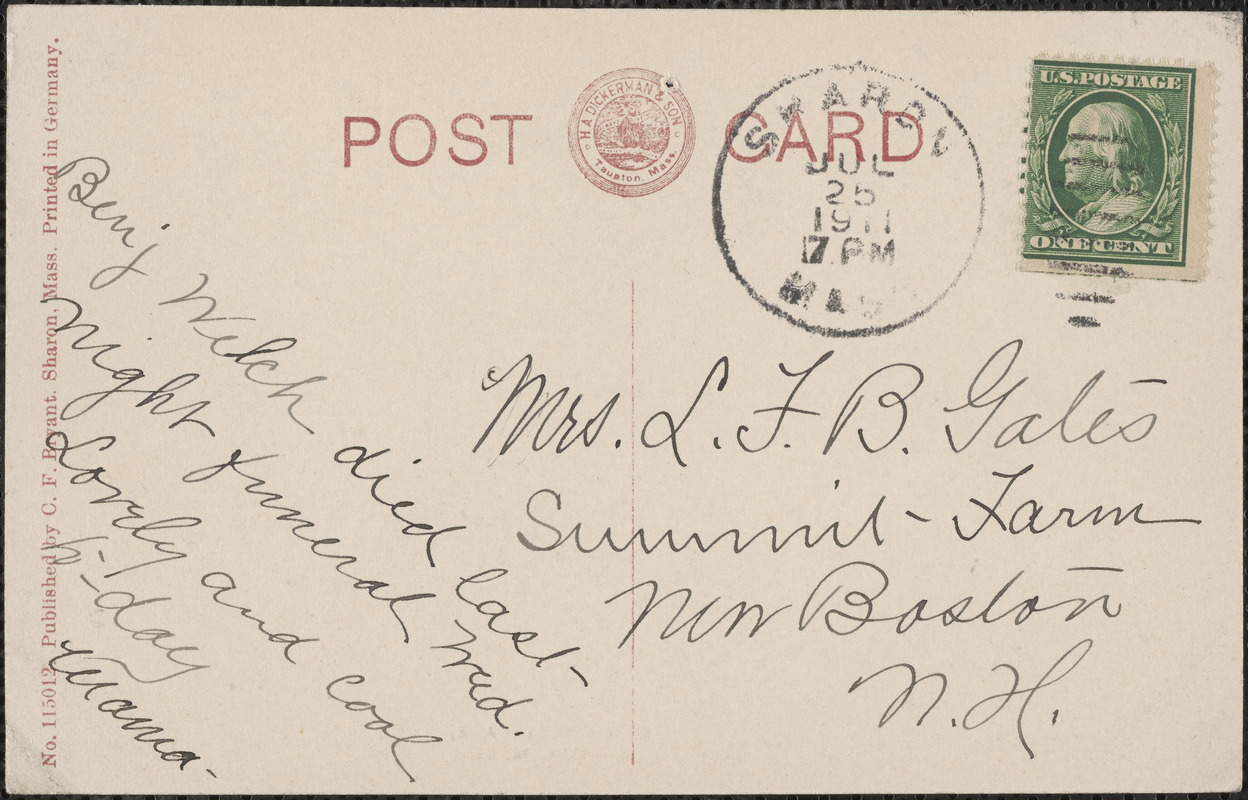 No. 115012. Published by C. F. Bryant. Sharon, Mass. Printed in Germany.
POST CARD
H.A. DICKERMAN & SON
Taunton, Mass.
SHARON
JUL
25
1911
7 PM
MASS
U.S. POSTAGE
ONE CENT
Benj Welch died last
night funeral Wed.
Lovely and cool
to-day
Mama-
Mrs. L. F. B. Gates
Summit Farm
New Boston
N. H.